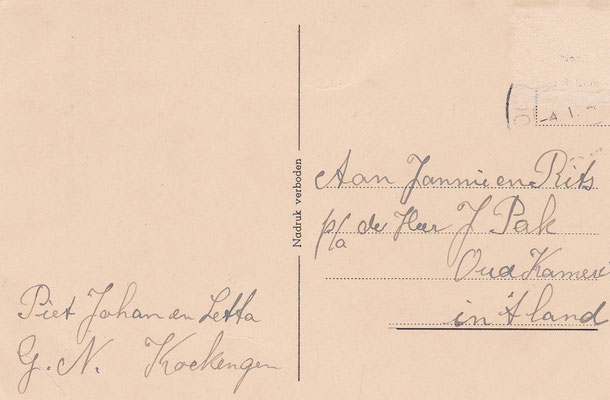 Piet Johan en Letta
G. N. Kockengen
Nadruk verboden
Aan Jannie en Rits
p/a de Heer J Pak
Oud Kamer
in 't land